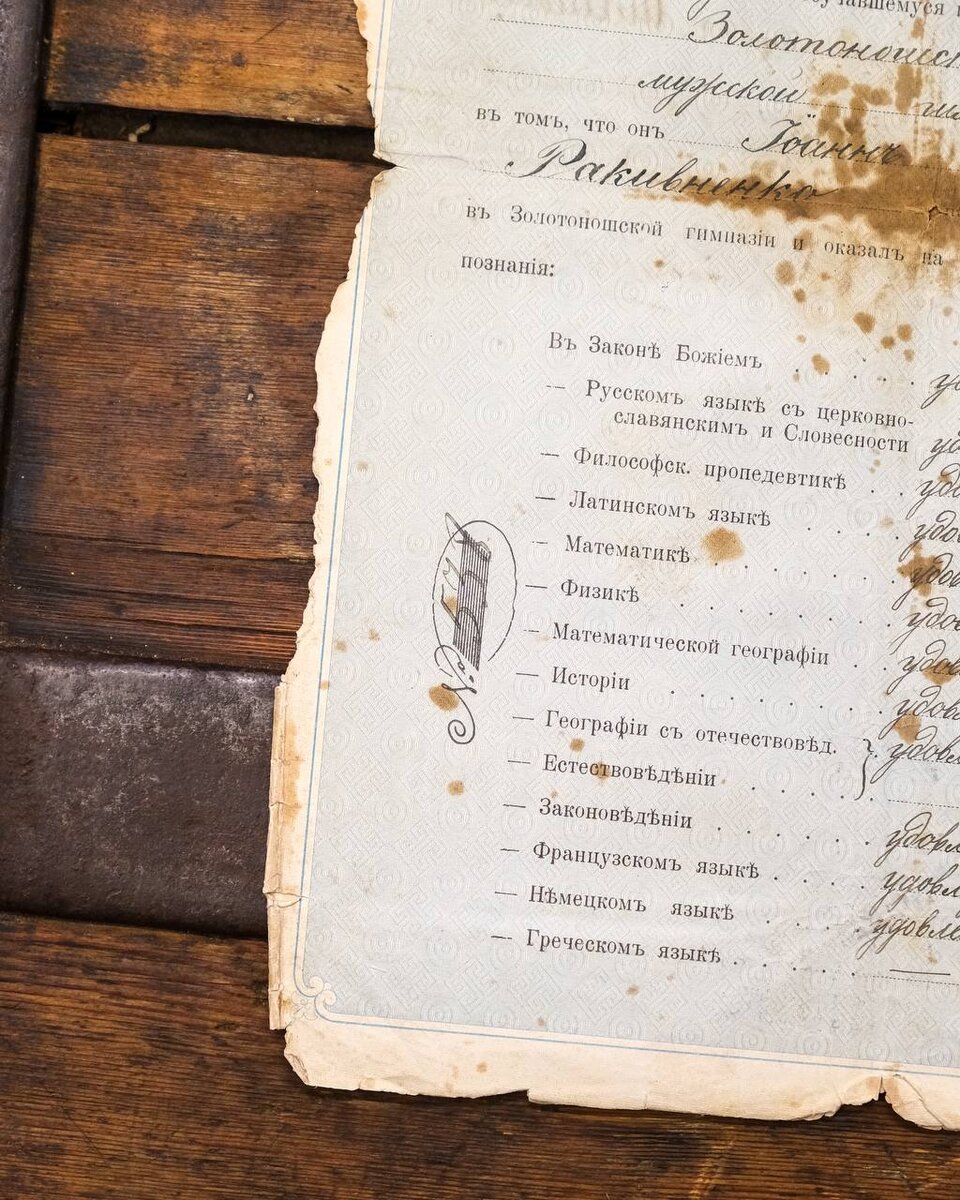 Золотоношс
мужской
въ томъ, что онъ Іоаннъ
Ракивненко
въ Золотоношской гимназіи и оказалъ на
познанія:
Въ Законѣ Божіемъ . . . . уд
— Русскомъ языкѣ съ церковно-
славянскимъ и Словесности удо
— Философск. пропедевтикѣ . . удо
— Латинскомъ языкѣ . . . удов
— Математикѣ . . . . . удов
— Физикѣ . . . . . . удов
— Математической географіи . . удов
— Исторіи . . . . . . удовл
— Географіи съ отечествовѣд. } удовл
— Естествовѣдѣніи . . . .
— Законовѣдѣніи . . . . . удовл
— Французскомъ языкѣ . . . . удовл
— Нѣмецкомъ языкѣ . . . удовле
— Греческомъ языкѣ . . . . . —